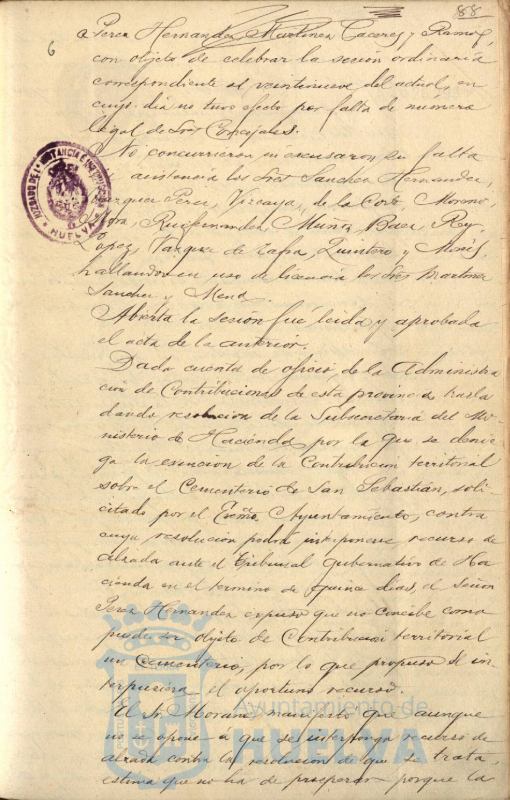 88
Perez Hernandez Martinez Caceres y Ramos,
con objeto de celebrar la sesion ordinaria
correspondiente al veintinueve del actual, en
cuyo dia no tuvo efecto por falta de numero
legal de Sres Concejales.
No concurrieron ni excusaron su falta
de asistencia los Sres Sanchez Hernandez,
Vazquez Perez, Vizcaya, de la Corte Moreno
Mora, Ruifernandez, Muñiz, Baca, Rey,
Lopez, Vazquez de Zafra, Quintero y
hallandose en uso de licencia los Sres Martinez
Sanchez y Mena.
Abierta la sesión fué leida y aprobada
el acta de la anterior.
Dada cuenta de oficio de la Administra
cion de Contribuciones de esta provincia, trasla
dando resolucion de la Subsecretaria del Mi-
nisterio de Hacienda por la que se denie-
ga la esencion de la Contribucion territorial
sobre el Cementerio de San Sebastián, soli-
citada por el Excmo. Ayuntamiento, contra
cuya resolución podrá interponerse recurso de
alzada ante el Tribunal Gubernativo de Ha
cienda en el termino de quince dias, el señor
Perez Hernandez expuso que no concibe como
puede ser objeto de Contribucion territorial
un Cementerio, por lo que propuso se in-
terpusiera el oportuno recurso.
El Sr. Morano manifestó que aunque
no se opone a que se interponga recurso de
alzada contra la resolucion de que se trata,
estima que no ha de prosperar porque la
JUZGADO DE 1ª INSTANCIA E INSTRUCCION
HUELVA
Ayuntamiento de
HUELVA